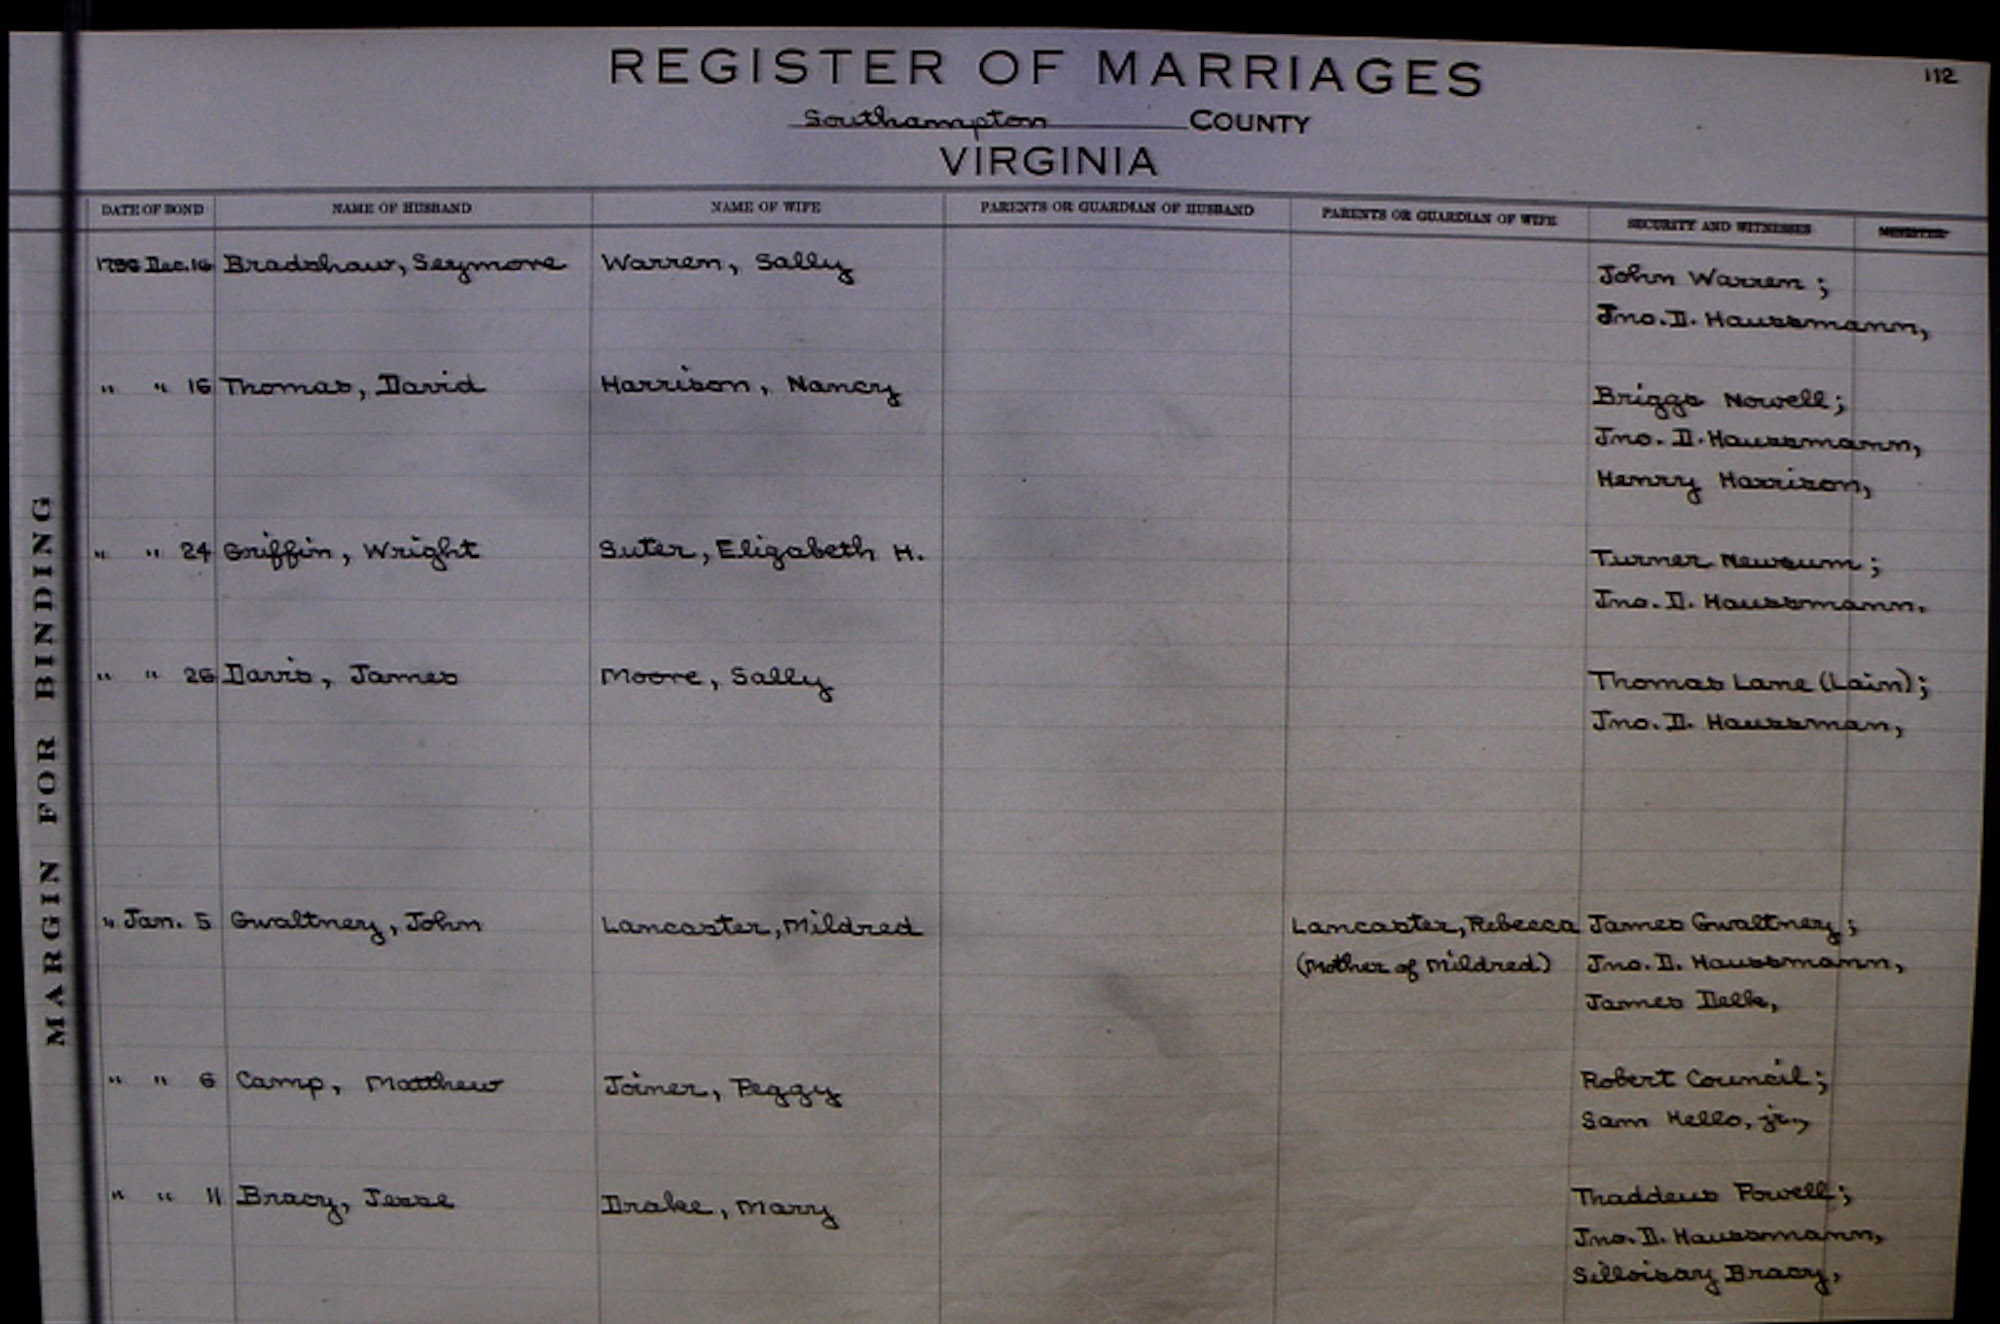 REGISTER OF MARRIAGES 112
Southampton COUNTY
VIRGINIA
MARGIN FOR BINDING
DATE OF BOND NAME OF HUSBAND NAME OF WIFE PARENTS OR GUARDIAN OF HUSBAND PARENTS OR GUARDIAN OF WIFE SECURITY AND WITNESSES MINISTER
Dec. 16 Bradshaw, Seymore Warren, Sally John Warren;
Jno. D. Haussmann,
" " 16 Thomas, David Harrison, Nancy Briggs Nowell;
Jno. D. Haussmann,
Henry Harrison,
" " 24 Griffin, Wright Suter, Elizabeth H. Turner Newsum;
Jno. D. Haussmann,
" " 26 Davis, James Moore, Sally Thomas Lane (Lain);
Jno. D. Haussman,
" Jan. 5 Gwaltney, John Lancaster, Mildred Lancaster, Rebecca James Gwaltney;
(Mother of Mildred) Jno. D. Haussmann,
James Delk,
" " 6 Camp, Matthew Joiner, Peggy Robert Council;
Sam Kello, jr.,
" " 11 Bracy, Jesse Drake, Mary Thaddeus Powell;
Jno. D. Haussmann,
Bracy,